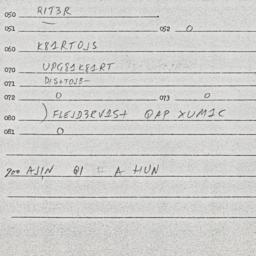 050 RIT3R
051 — 052 0
060 K81RTOJS
070 UPG81K81RT
071 DISTOJE—
072 0 073 0
080 ) FLEJD3RV1S+ QAP XUM1C
081 0
900 AJIN QI A HUN